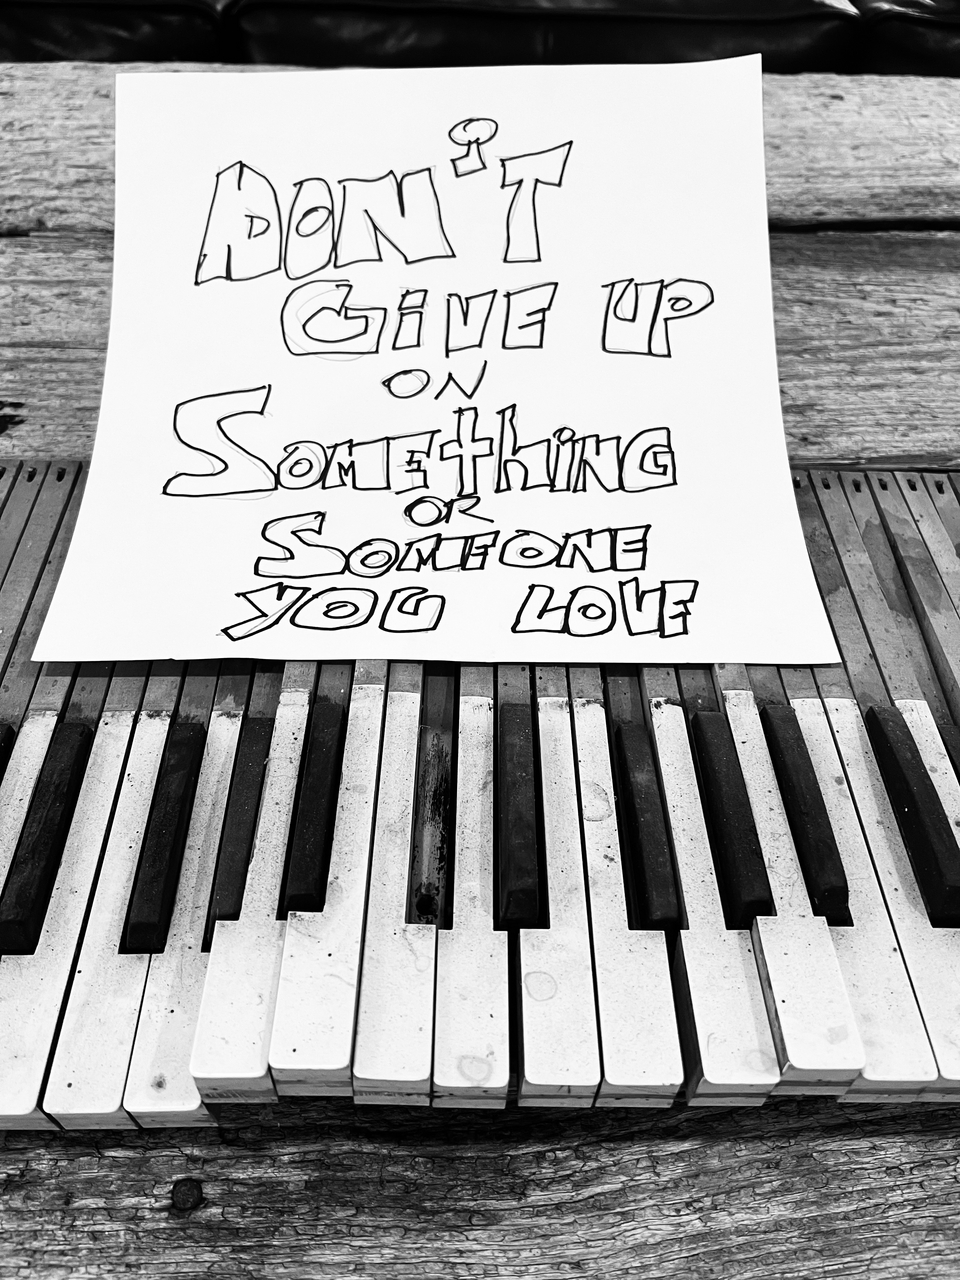 DON'T
GiVE UP
ON
SOMEthiNG
OR
SOMEONE
YOU LOVE